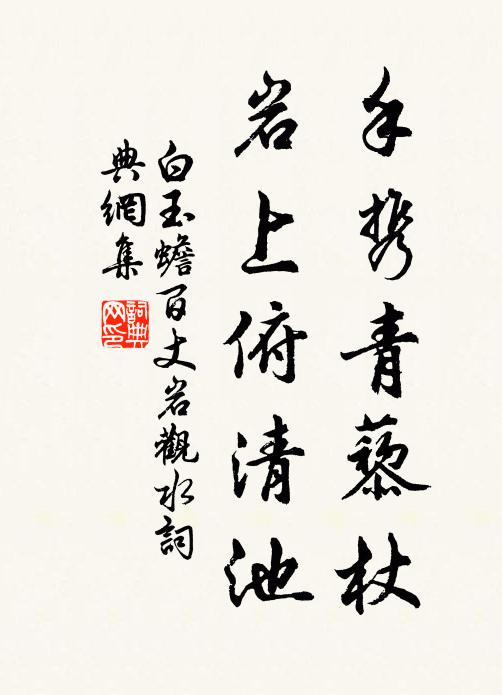 手携青藜杖
岩上俯清池
白玉蟾百丈岩觀水詞
典網集
詞典
网印